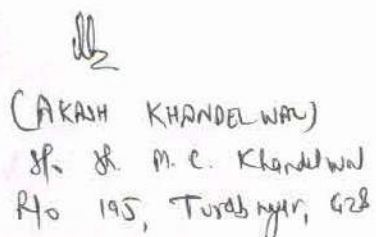 (AKASH KHANDELWAL)
S/o Sh. M. C. Khandelwal
R/o 195, Turab nagar, GZB